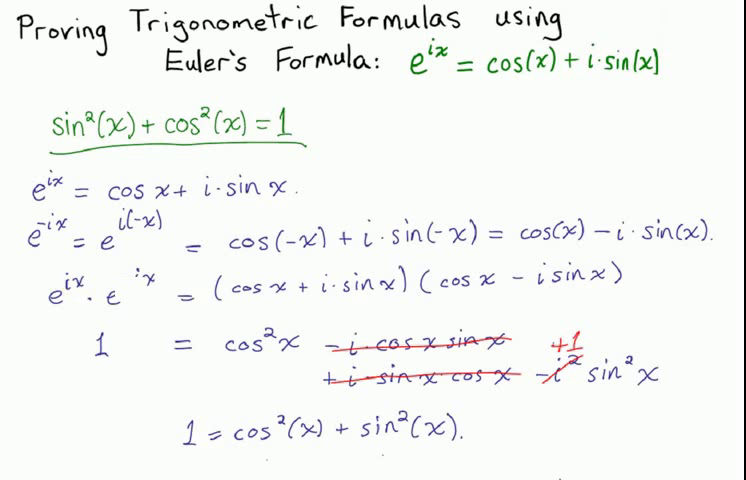 Proving Trigonometric Formulas using
Euler's Formula: e^{ix} = cos(x) + i·sin(x)
sin²(x) + cos²(x) = 1
e^{ix} = cos x + i·sin x.
e^{-ix} = e^{i(-x)} = cos(-x) + i·sin(-x) = cos(x) - i·sin(x).
e^{ix}·e^{ix} = (cos x + i·sin x)(cos x - i sin x)
1 = cos²x - i·cos x sin x +1
+ i·sin x cos x - i² sin²x
1 = cos²(x) + sin²(x).